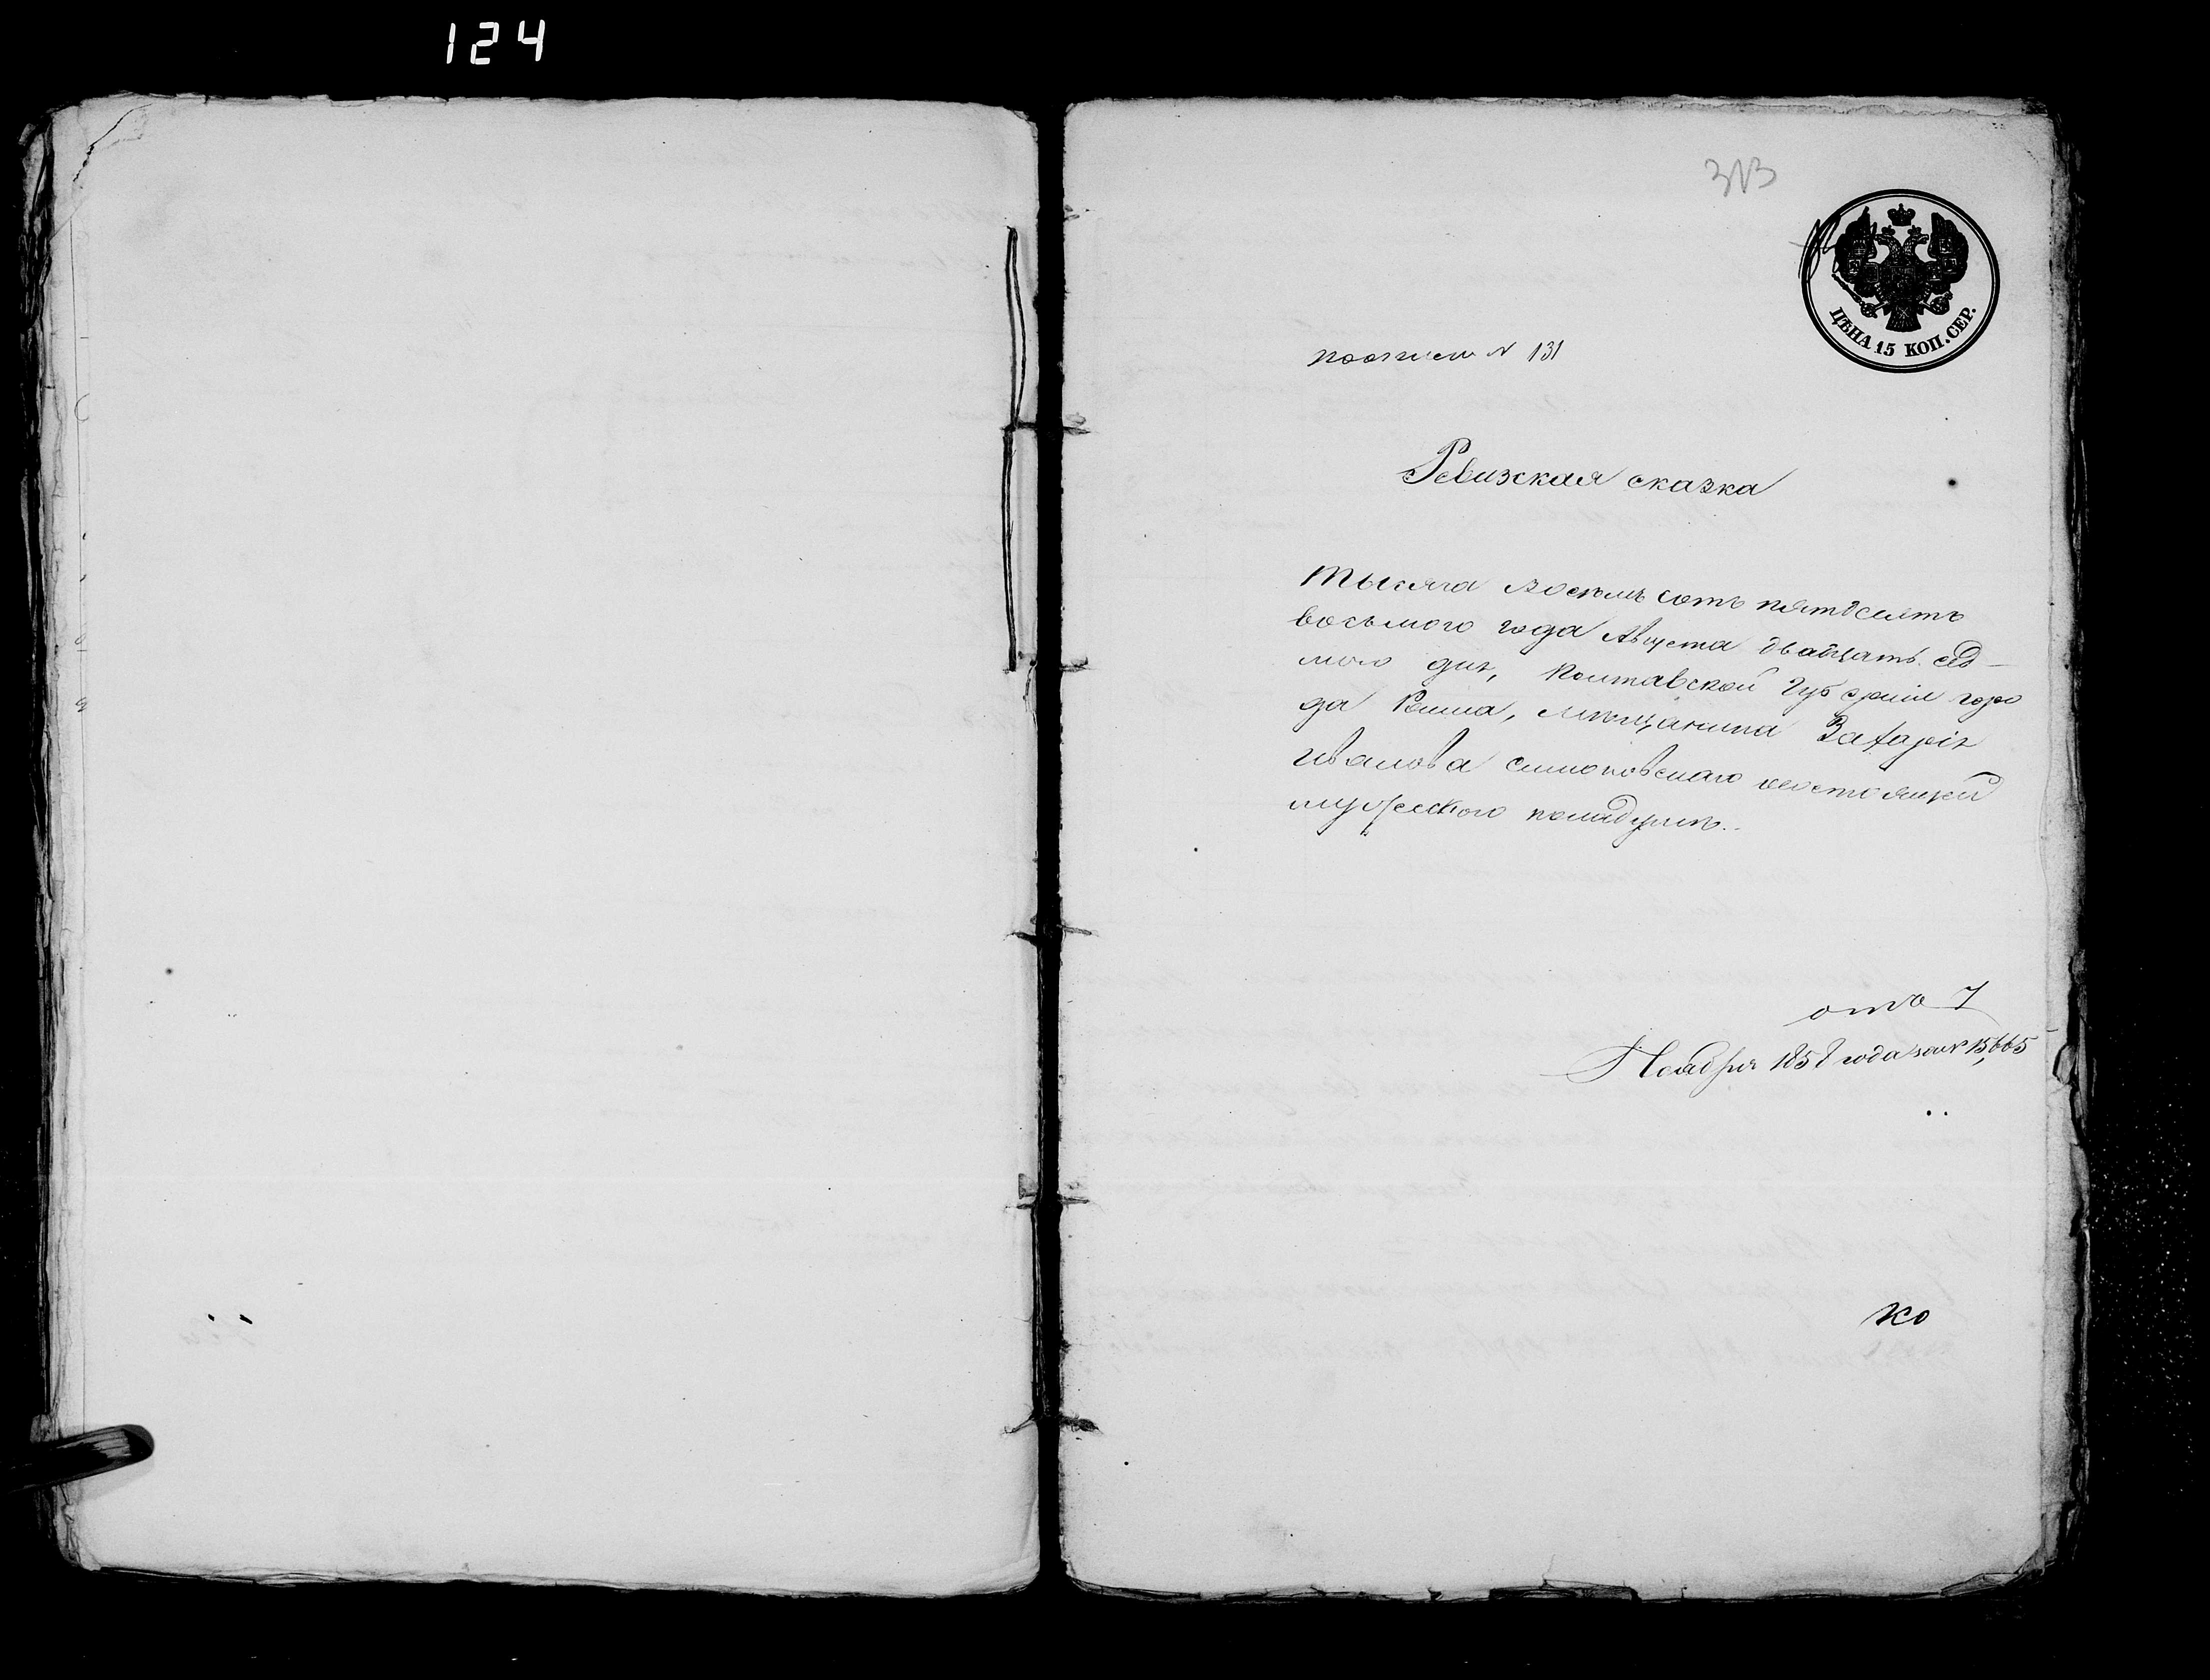 124
313
ЦѢНА 15 КОП. СЕР.
поописи N 131
Ревизская сказка
Тысяча восемь сотъ пятдесятъ
восьмого года Августа двадцать сед-
мого дня, Полтавской Губерніи горо
да Ромна, мѣщанина Захарія
Иванова состоящей
мужескаго
отъ 7
Ноября 1858 года за N 15,665
ко